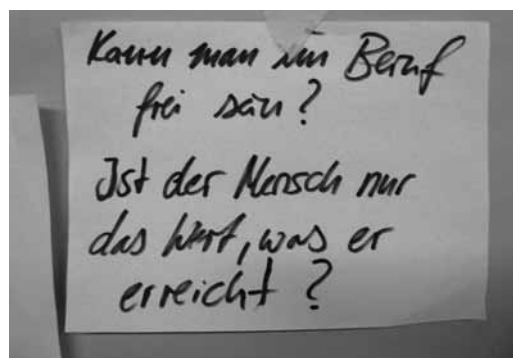 Kann man im Beruf
frei sein?
Ist der Mensch nur
das Wert, was er
erreicht?